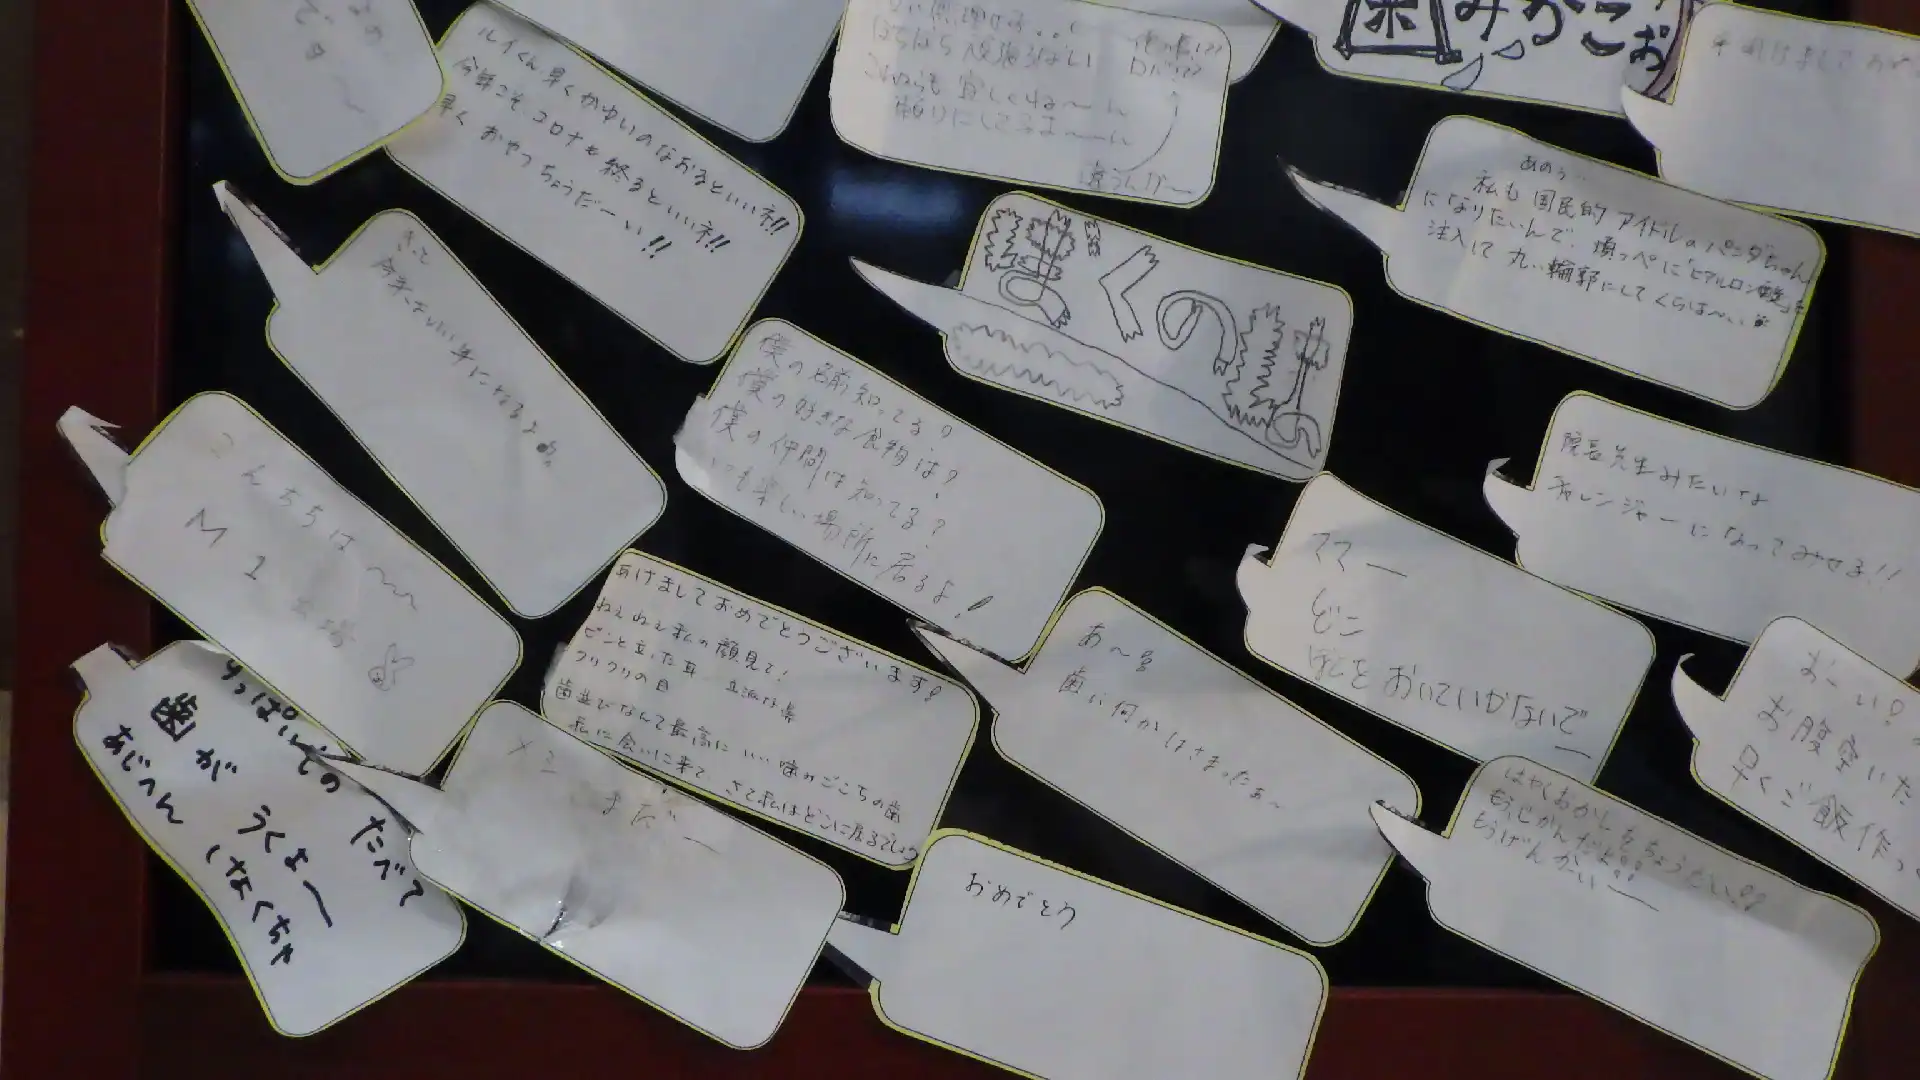 ルイくん早くかゆいのなおるといいネ!!
今年こそコロナも終るといいネ!!
早くおやつちょうだーい!!
ぼちぼち頑張ろばい
これからも宜しくねー
頼りにしてるよー
違うんかー
みがこお
あのぅ…
私も国民的アイドルのパンダちゃん
になりたいんで、頬っぺにヒアルロン酸を
注入して丸い輪郭にしてくらはーい
きっと
今年はいい年になるよ
僕の名前知ってる?
僕の好きな食物は?
僕の仲間は知ってる?
いつも楽しい場所に居るよ!
院長先生みたいな
チャレンジャーになってみせる!!
こんちちは〜
M1出場
ママー
どこ
ぼくをおいていかないでー
あけましておめでとうございます!
ねぇねぇ私の顔見て!
ピンと立った耳 立派な鼻
クリクリの目
歯並びなんて最高にいい噛みごこちの歯
私に会いに来て、さて私はどこに居るでしょう
あ〜ん
歯に何かはさまったぁ〜
おーい!
お腹空いた
早くご飯作っ
すっぱいものたべて
歯がうくよー
あじへん しなくちゃ
メシ
まだー
おめでとう
はやくおかしをちょうだい!!
もうじかんだよ!!
もうげんかいー